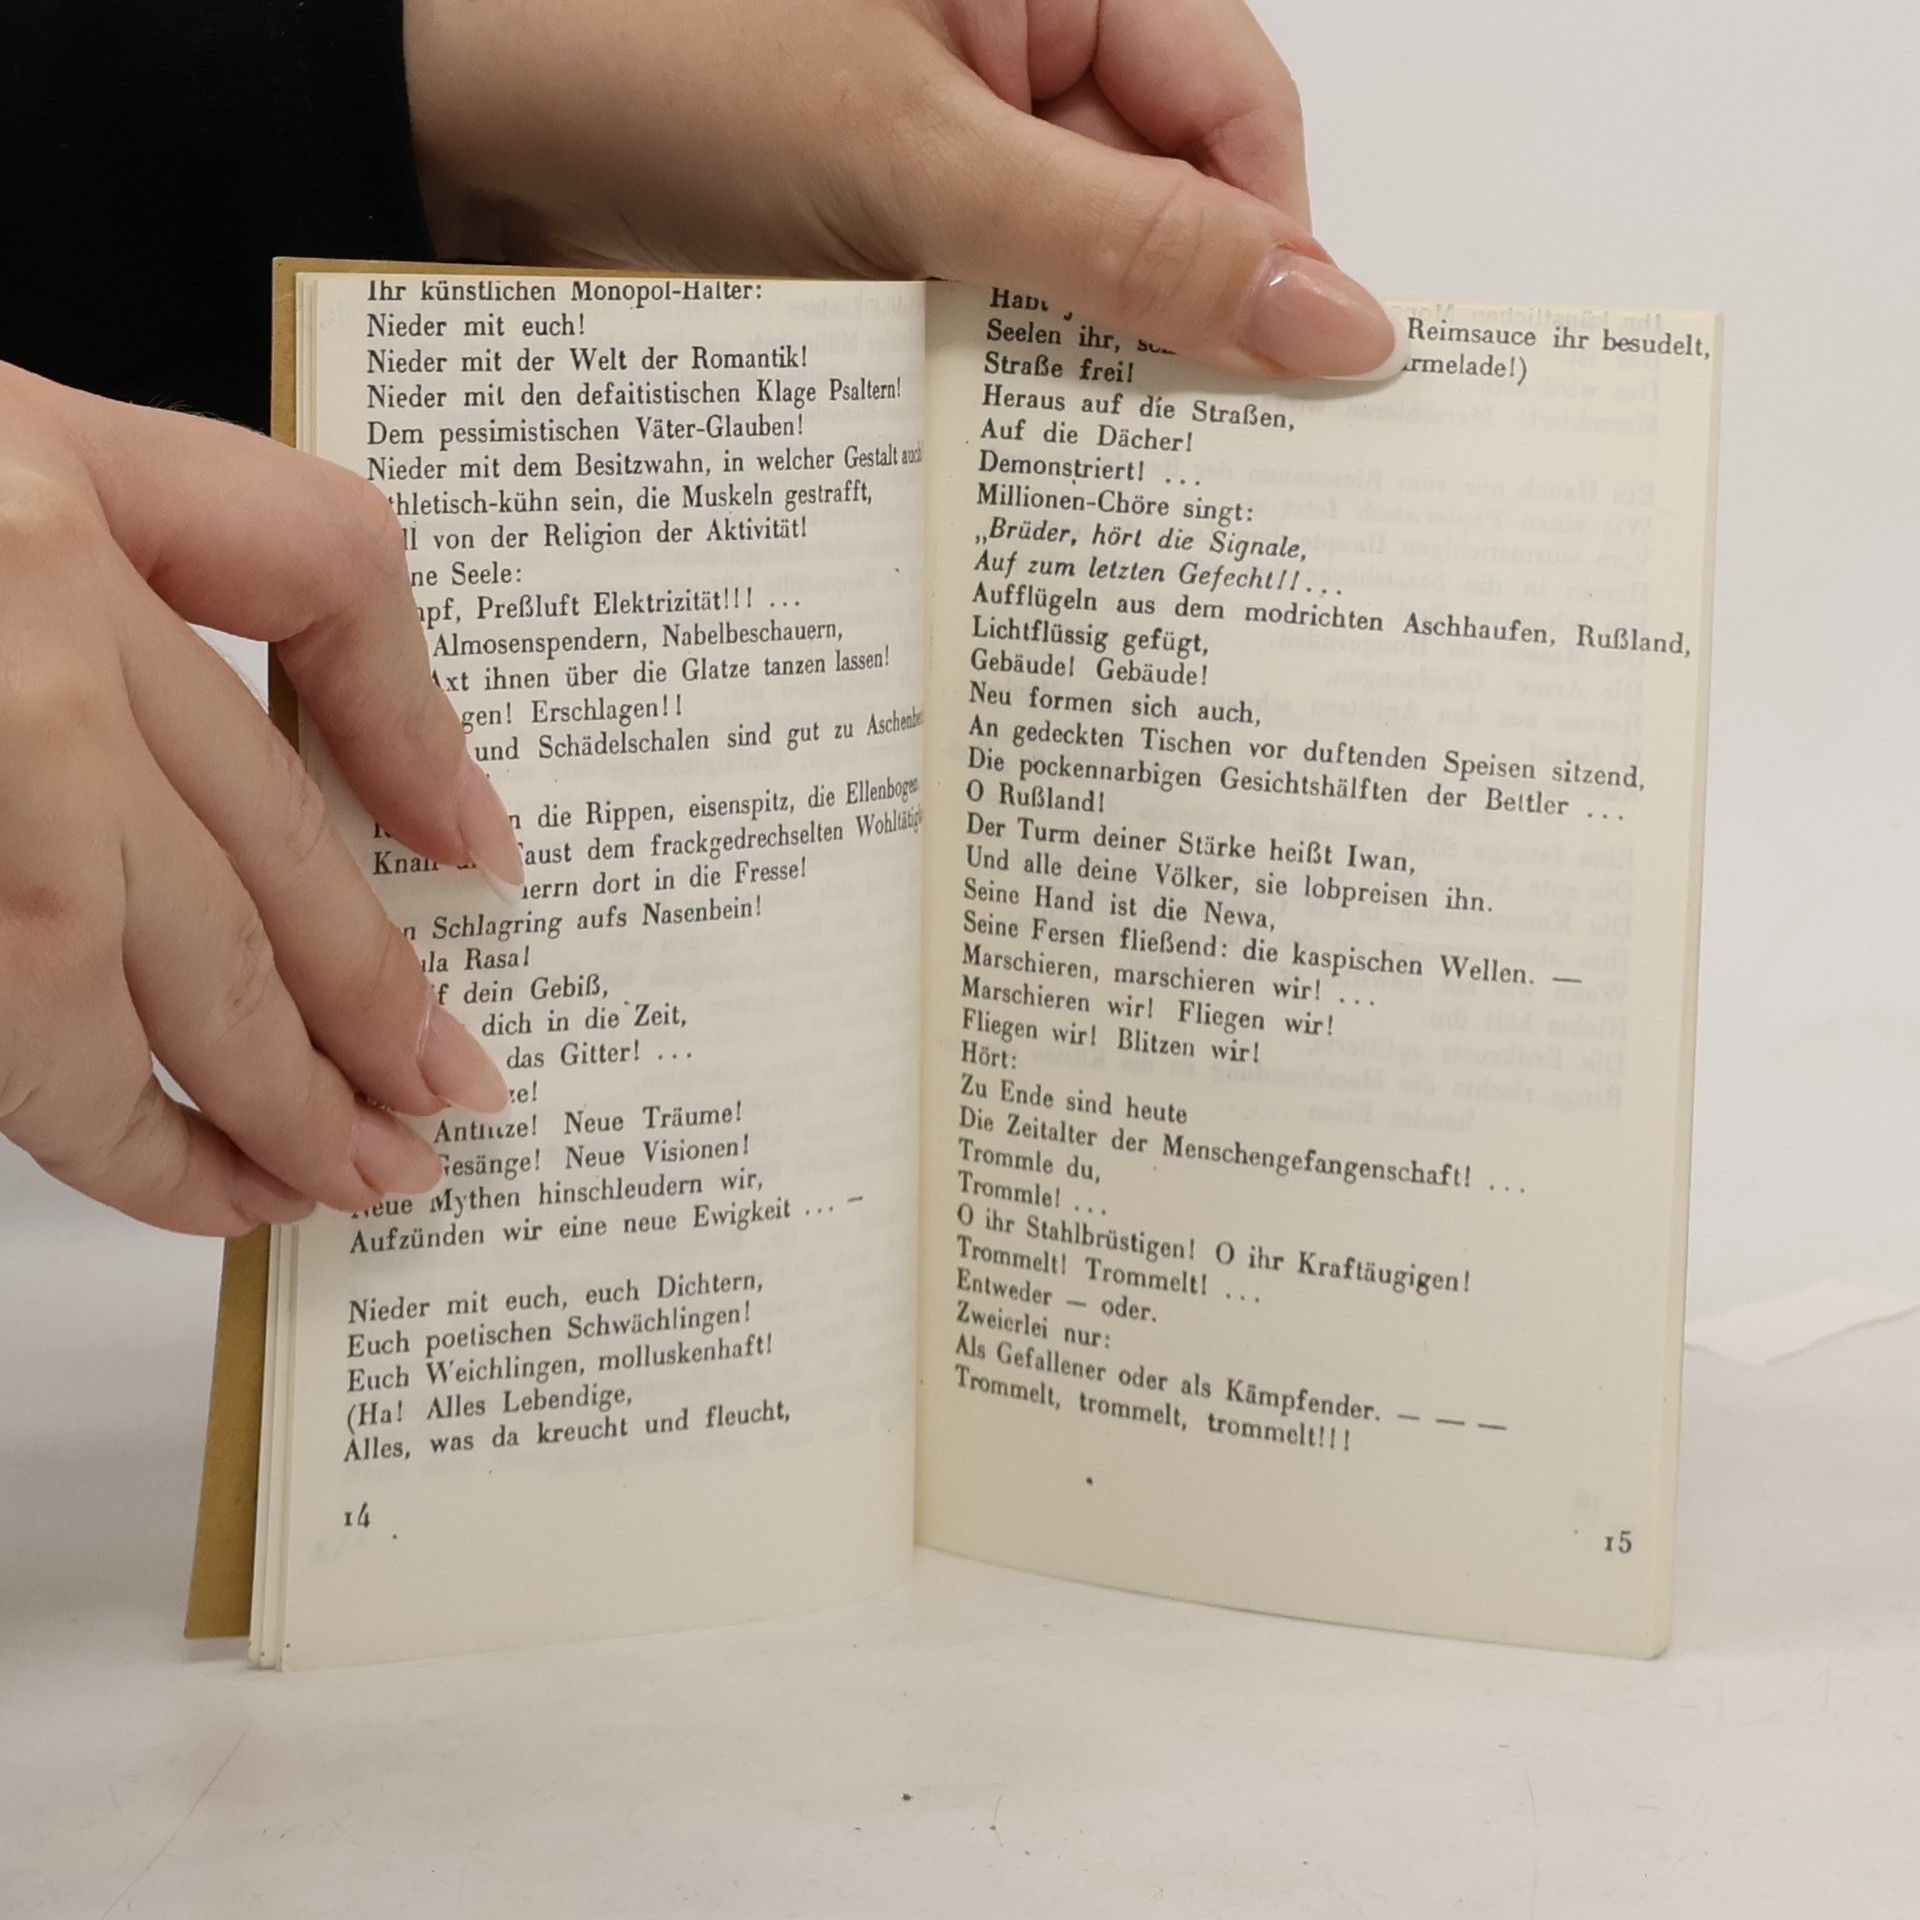 Ihr künstlichen Monopol-Halter:
Nieder mit euch!
Nieder mit der Welt der Romantik!
Nieder mit den defaitistischen Klage Psaltern!
Dem pessimistischen Väter-Glauben!
Nieder mit dem Besitzwahn, in welcher Gestalt auch
thletisch-kühn sein, die Muskeln gestrafft,
ll von der Religion der Aktivität!
ne Seele:
pf, Preßluft Elektrizität!!! ...
Almosenspendern, Nabelbeschauern,
Axt ihnen über die Glatze tanzen lassen!
gen! Erschlagen!!
und Schädelschalen sind gut zu
n die Rippen, eisenspitz, die Ellenbogen
Knall Faust dem frackgedrechselten
herrn dort in die Fresse!
n Schlagring aufs Nasenbein!
ula Rasa!
f dein Gebiß,
dich in die Zeit,
das Gitter! ...
ze!
Antlitze! Neue Träume!
Gesänge! Neue Visionen!
Neue Mythen hinschleudern wir,
Aufzünden wir eine neue Ewigkeit ... —
Nieder mit euch, euch Dichtern,
Euch poetischen Schwächlingen!
Euch Weichlingen, molluskenhaft!
(Ha! Alles Lebendige,
Alles, was da kreucht und fleucht,
14
Habt
Seelen ihr, Reimsauce ihr besudelt,
rmelade!)
Straße frei!
Heraus auf die Straßen,
Auf die Dächer!
Demonstriert! ...
Millionen-Chöre singt:
„Brüder, hört die Signale,
Auf zum letzten Gefecht!!...
Aufflügeln aus dem modrichten Aschhaufen, Rußland,
Lichtflüssig gefügt,
Gebäude! Gebäude!
Neu formen sich auch,
An gedeckten Tischen vor duftenden Speisen sitzend,
Die pockennarbigen Gesichtshälften der Bettler ...
O Rußland!
Der Turm deiner Stärke heißt Iwan,
Und alle deine Völker, sie lobpreisen ihn.
Seine Hand ist die Newa,
Seine Fersen fließend: die kaspischen Wellen. —
Marschieren, marschieren wir! ...
Marschieren wir! Fliegen wir!
Fliegen wir! Blitzen wir!
Hört:
Zu Ende sind heute
Die Zeitalter der Menschengefangenschaft! ...
Trommle du,
Trommle! ...
O ihr Stahlbrüstigen! O ihr Kraftäugigen!
Trommelt! Trommelt! ...
Entweder — oder.
Zweierlei nur:
Als Gefallener oder als Kämpfender. — — —
Trommelt, trommelt, trommelt!!!
15